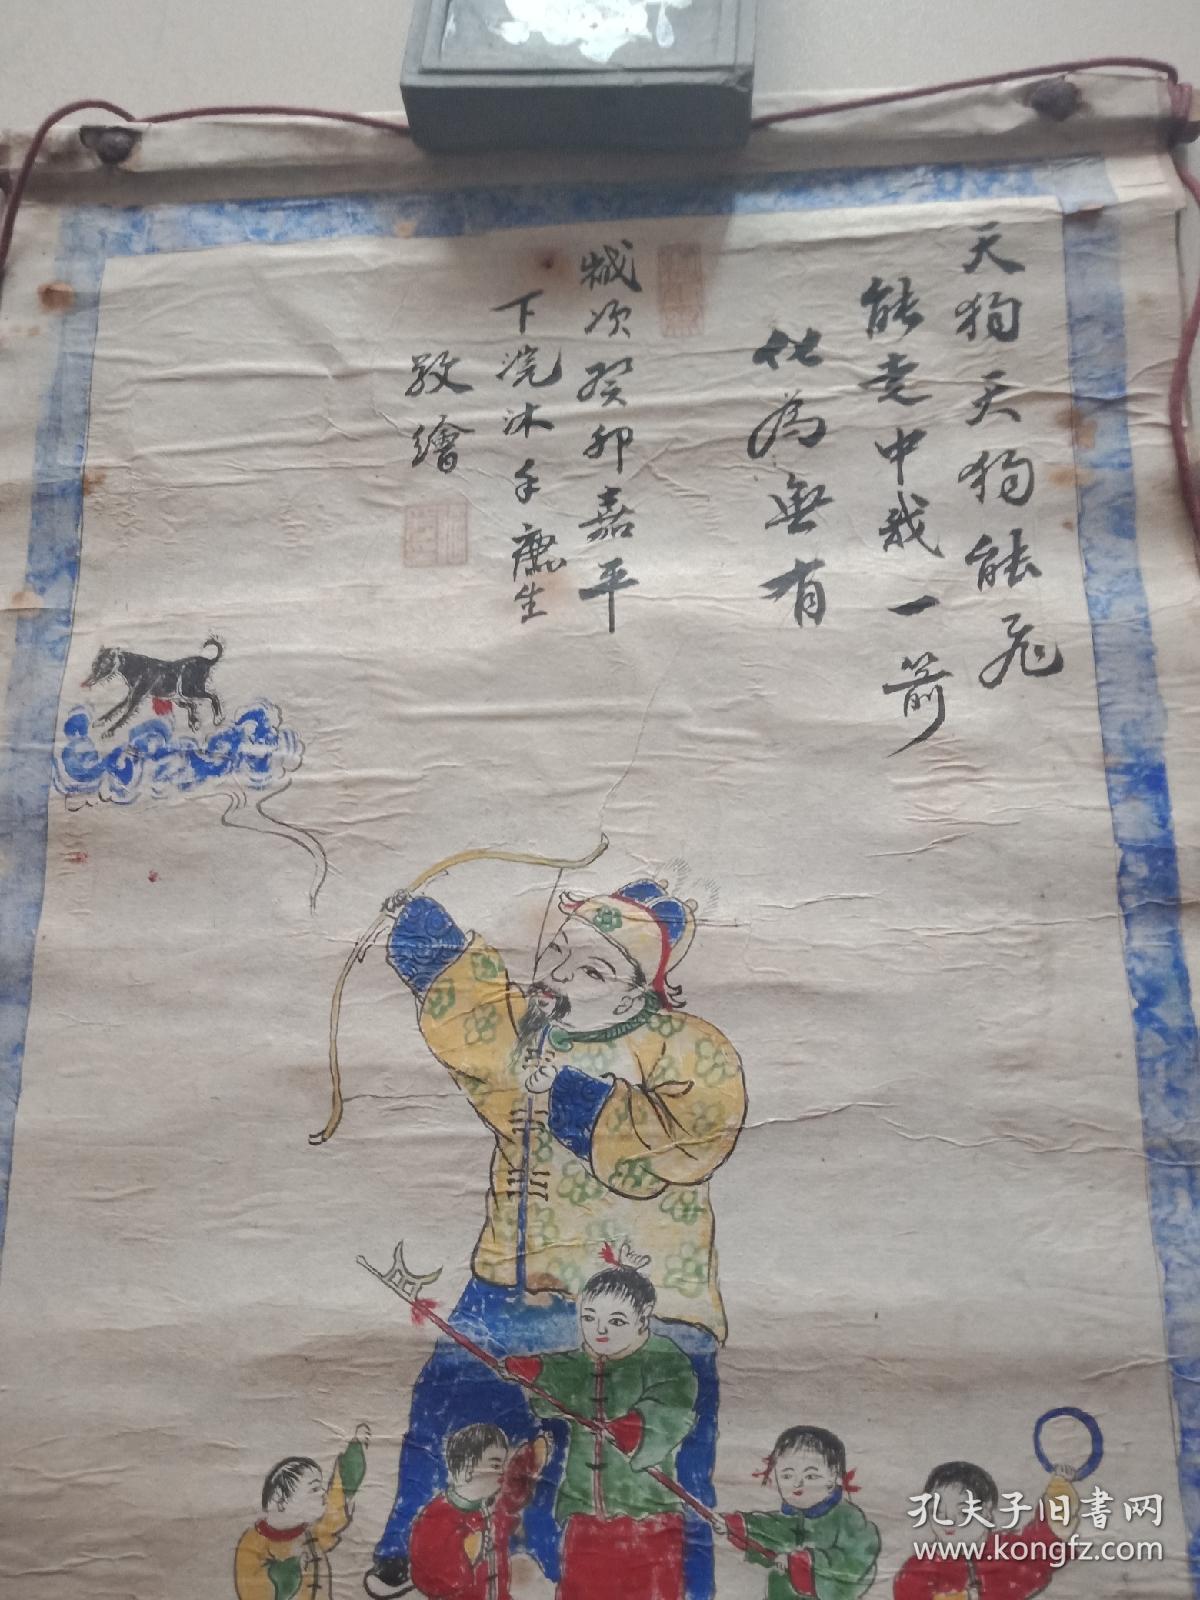 天狗天狗能飛
能走中我一箭
化為無有
歲次癸卯嘉平
下浣沐手廌生
敬繪
孔夫子旧書网
www.kongfz.com